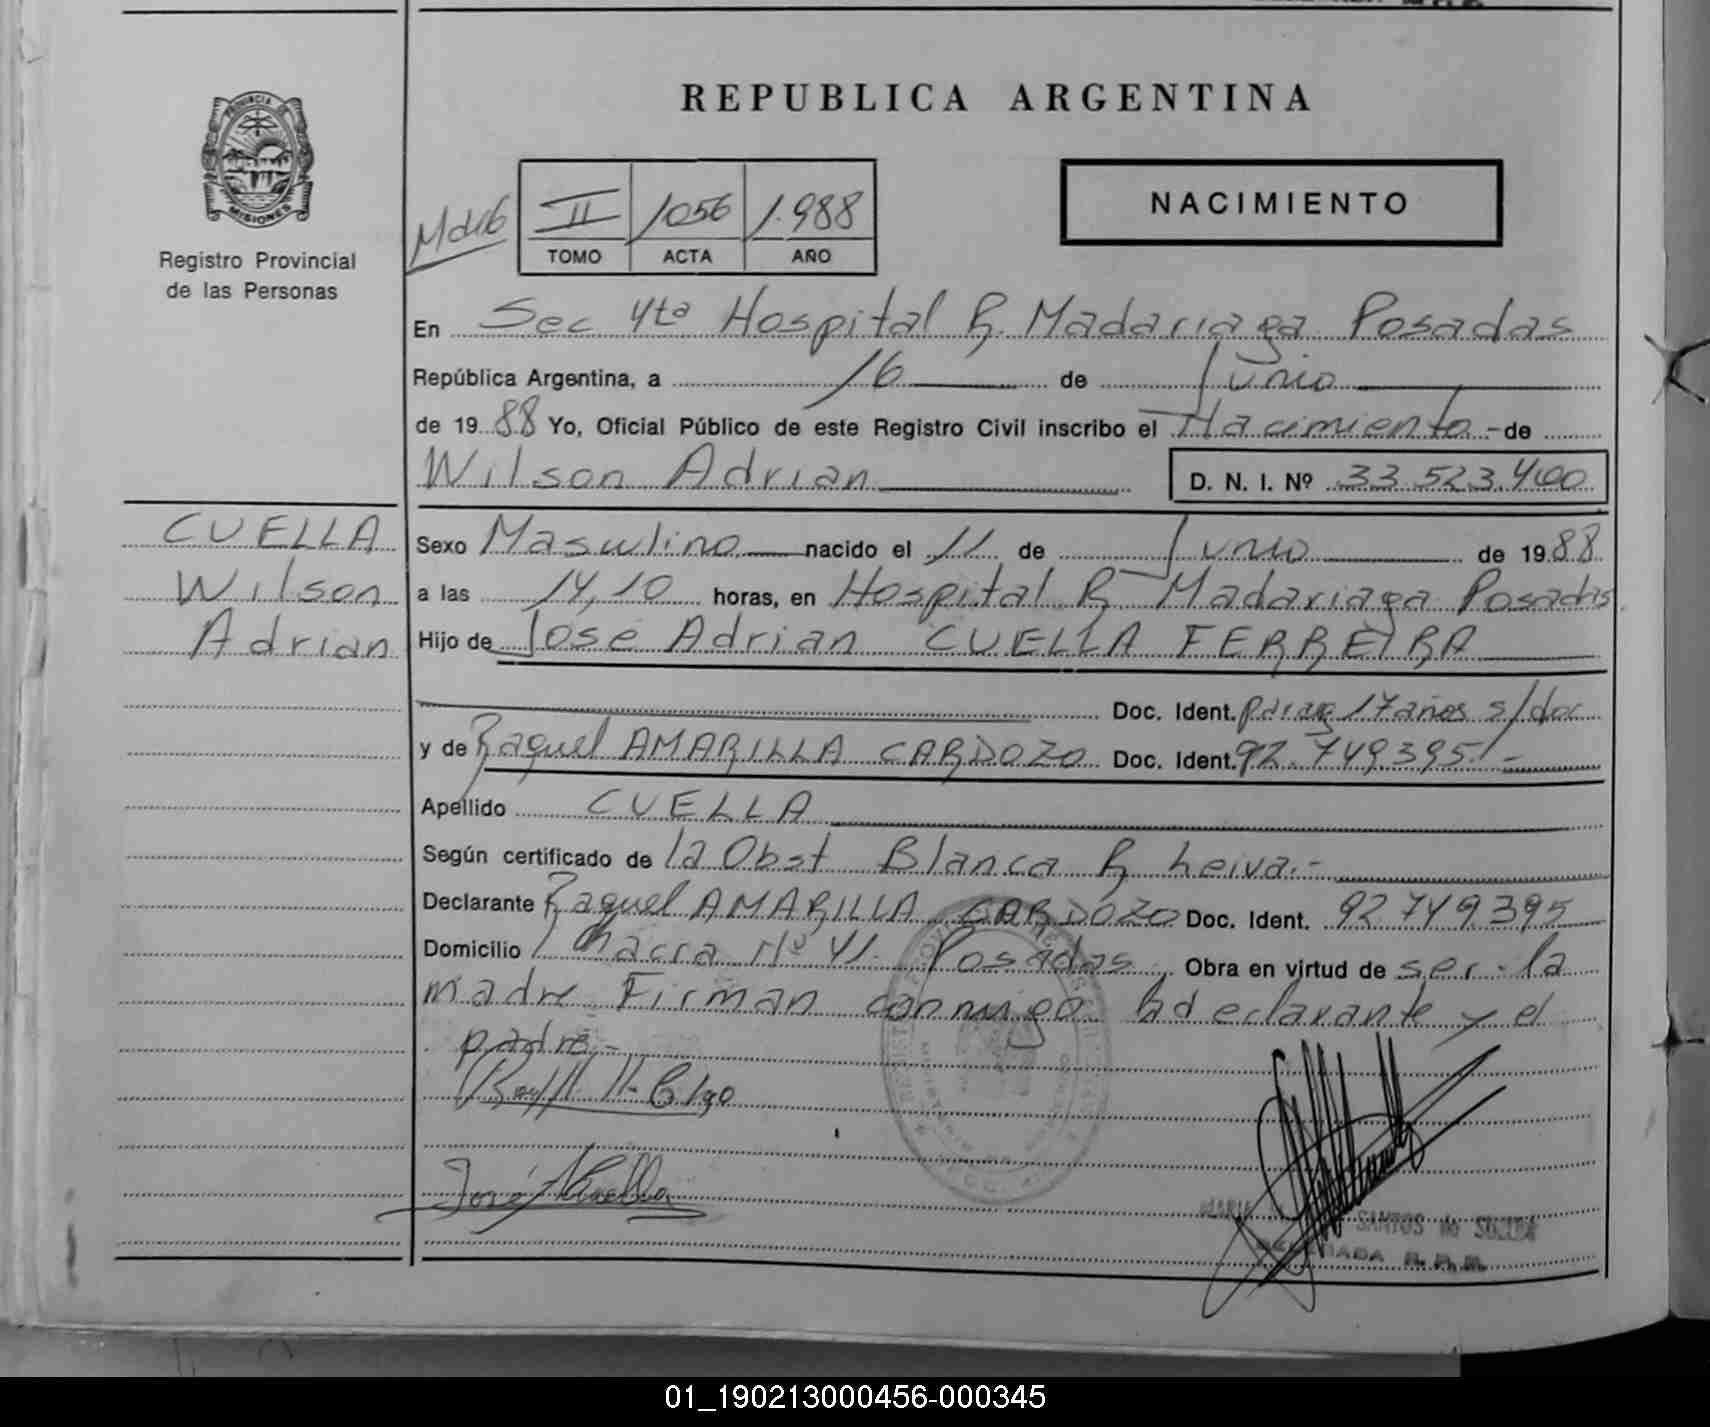 REPUBLICA ARGENTINA
PROVINCIA DE
MISIONES
Registro Provincial
de las Personas
NACIMIENTO
II 1056 1.988
TOMO ACTA AÑO
En Sec 4ta Hospital R. Madariaga Posadas
República Argentina, a 16 de Junio
de 1988 Yo, Oficial Público de este Registro Civil inscribo el Nacimiento - de
Wilson Adrian D. N. I. Nº 33.523.400
CUELLA
Wilson
Adrian
Sexo Masculino nacido el 11 de Junio de 1988
a las 14,10 horas, en Hospital R Madariaga Posadas
Hijo de José Adrian CUELLA FERREIRA
Doc. Ident. parag 17 años s/doc
y de Raquel AMARILLA CARDOZO Doc. Ident. 92.749.395.-
Apellido CUELLA
Según certificado de la Obst Blanca R Leiva.-
Declarante Raquel AMARILLA CARDOZO Doc. Ident. 92 749 395
Domicilio Chacra Nº 41. Posadas Obra en virtud de ser la
madre Firman conmigo la declarante y el
padre.-
José A Cuella
SANTOS de
R. P. P.
01_190213000456-000345